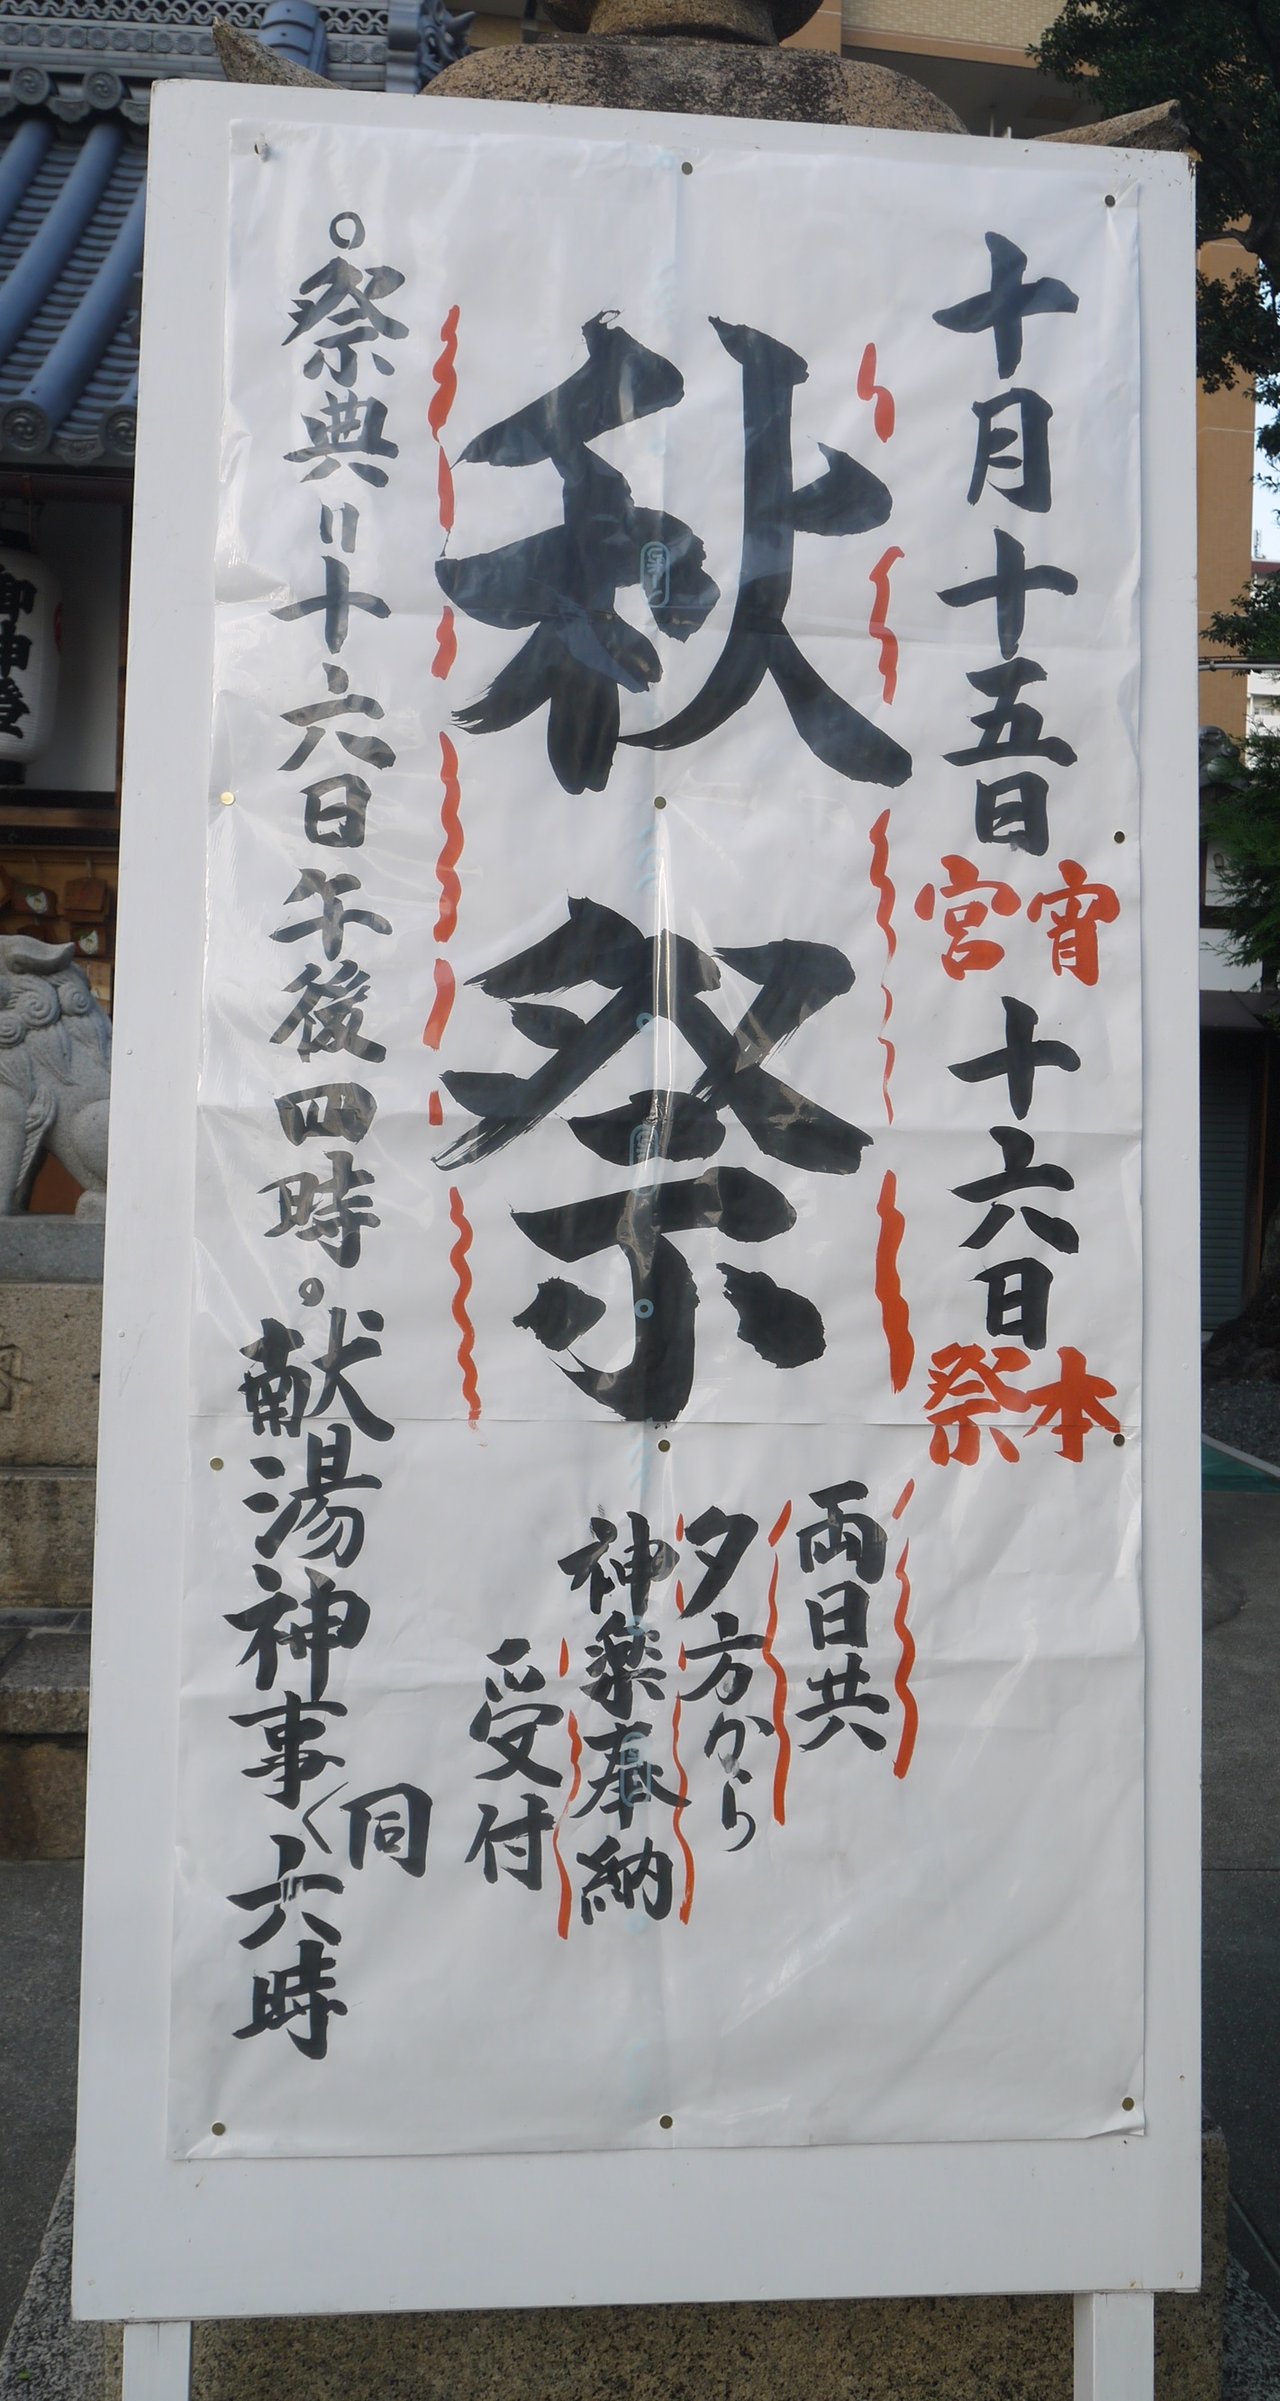 十月十五日宵宮十六日本祭
秋祭
両日共
夕方から
神楽奉納
受付
○祭典〃十六日午後四時○献湯神事〈同六時
御神燈